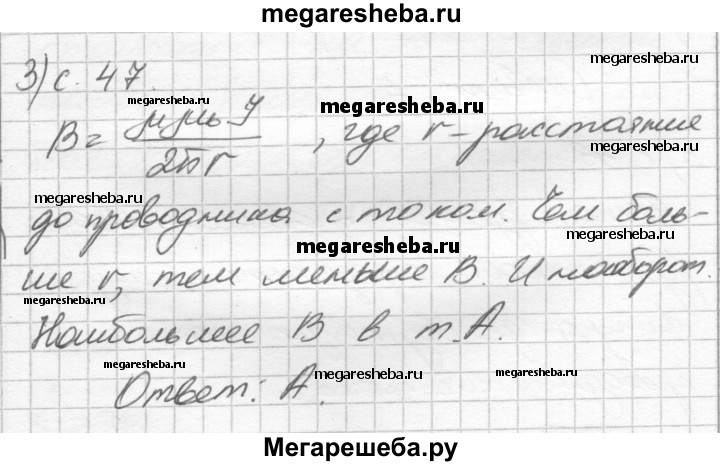 megaresheba.ru
3) с. 47.
megaresheba.ru
megaresheba.ru
megaresheba.ru
B = μμ₀ I / 2πr , где r - расстояние
megaresheba.ru
megaresheba.ru
до проводника с током. Чем боль-
megaresheba.ru
megaresheba.ru
ше r, тем меньше B. И наоборот.
megaresheba.ru
megaresheba.ru
Наибольшее B в т. A.
megaresheba.ru
megaresheba.ru
megaresheba.ru
Ответ: A.
Мегарешеба.ру